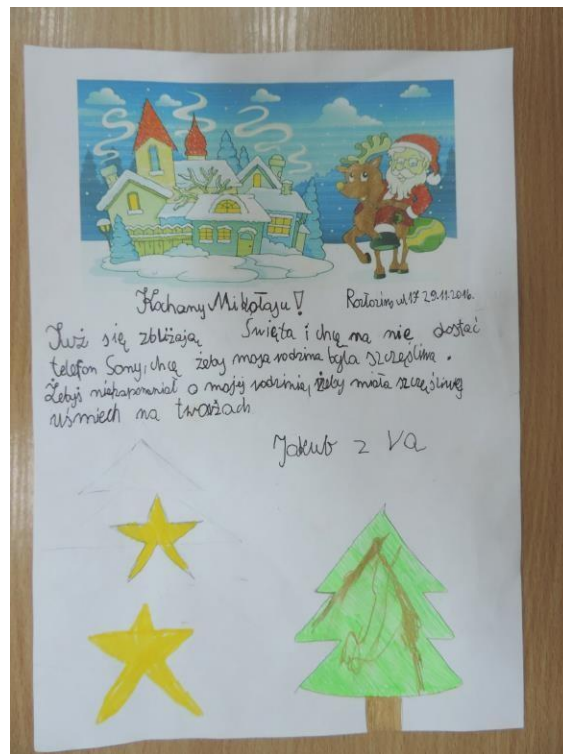 Kochany Mikołaju! Rozłoziny ul,17 29.11.2016.
Już się zbliżają Święta i chcę na nie dostać
telefon Sony, chcę żeby moja rodzina była szczęśliwa.
Żebyś niezapomniał o mojij rodzinie, żeby miała szczęśliwy
uśmiech na twarzach
Jakub z Va